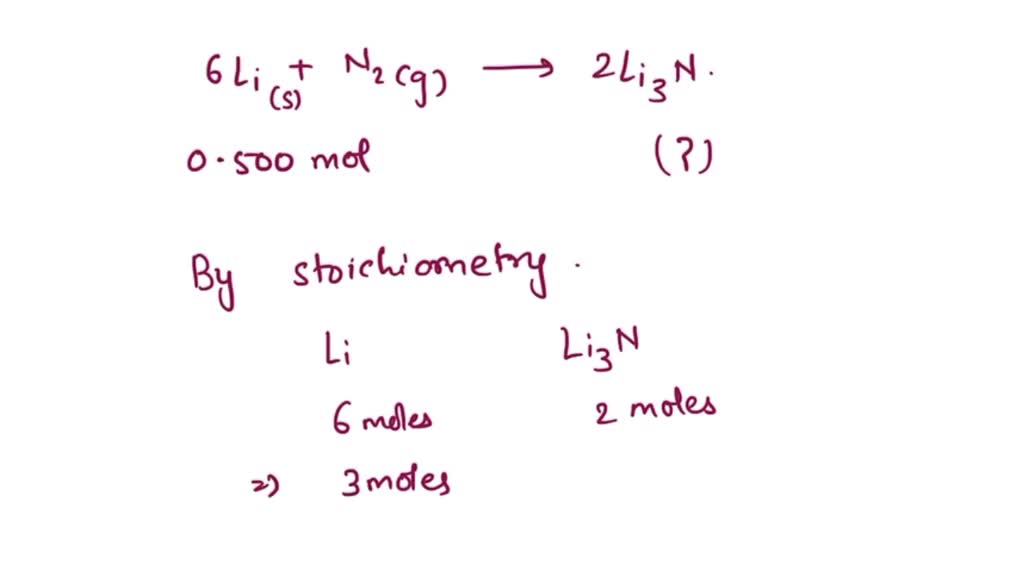 6Li(s) + N2(g) → 2Li3N.
0.500 mol (?)
By stoichiometry.
Li Li3N
6 moles 2 moles
⇒ 3 moles